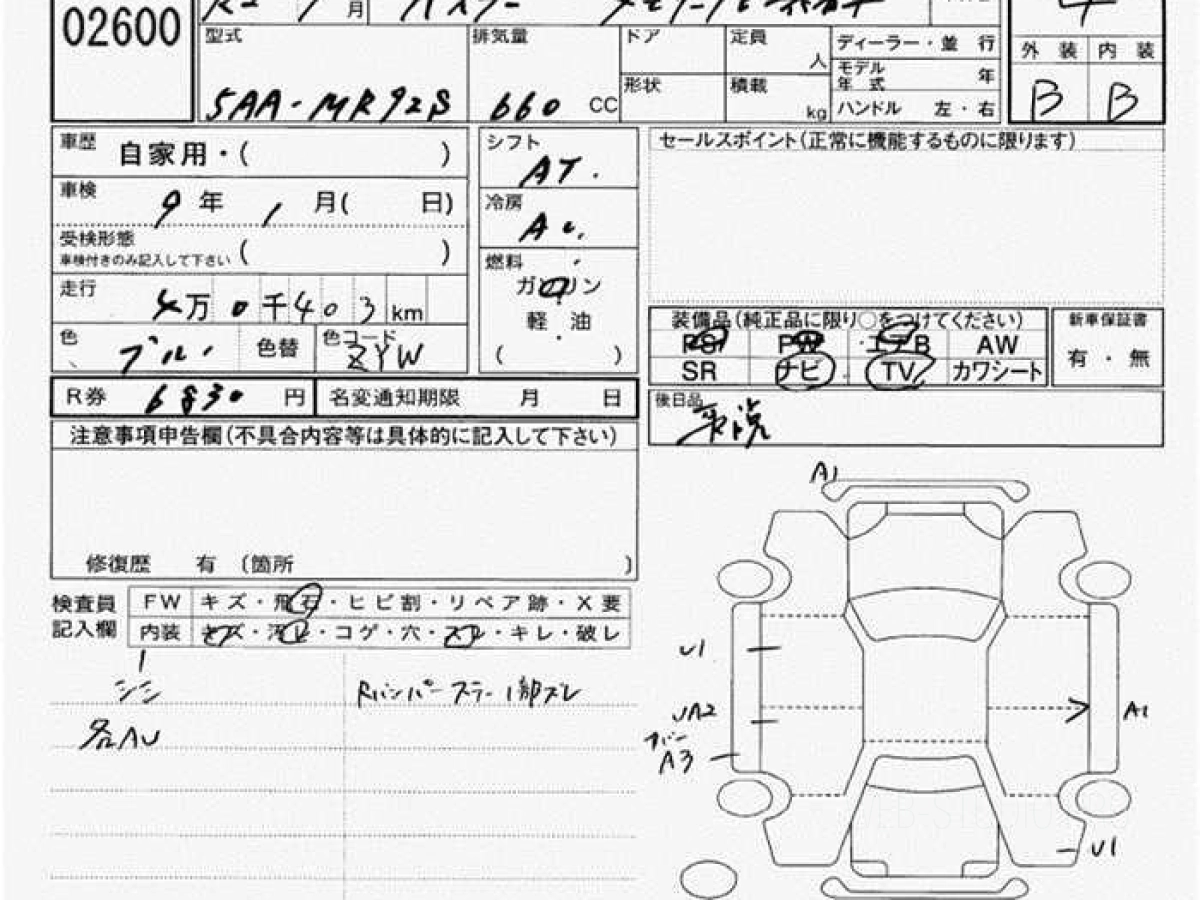 02600
月
型式 5AA-MR92S
排気量 660 CC
ドア
定員 人
形状
積載 kg
ディーラー・並 行
モデル年式 年
ハンドル 左・右
外 装 内 装
B B
車歴 自家用・( )
車検 9 年 1 月( 日)
受検形態
車検付きのみ記入して下さい ( )
走行 4万 0千403 km
色 ブルー 色替 色コード ZYW
シフト AT.
冷房 AC.
燃料
ガソリン
・
軽 油
・
( )
セールスポイント(正常に機能するものに限ります)
装備品(純正品に限り○をつけてください)
PS PW エアB AW
SR ナビ TV カワシート
新車保証書
有・無
R券 6830 円
名変通知期限 月 日
後日品
取説
注意事項申告欄(不具合内容等は具体的に記入して下さい)
修復歴 有 〔箇所 〕
検査員
記入欄
FW キズ・飛石・ヒビ割・リペア跡・X要
内装 キズ・汚れ・コゲ・穴・スレ・キレ・破レ
シミ
各AU
Rバンパーステー1部ズレ
A1
U1
UA2
カバー
A3
A1
U1